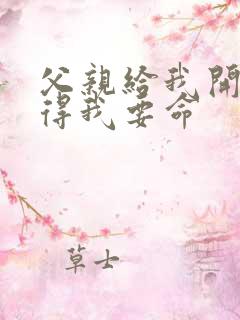 父親給我開
得我要命
草士